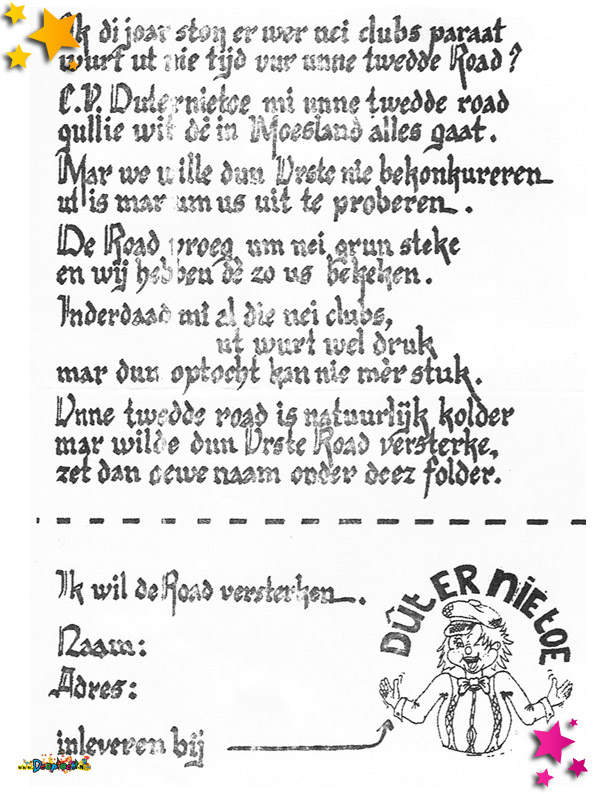 Ok di joar ston er wer nei clubs paraat
wurt ut nie tijd vur unne twedde Road?
C.V. Duternietoe mi unne twedde road
gullie wit dè in Moesland alles gaat.
Mar we wille dun Urste nie bekonkureren
ut is mar um us uit te proberen.
De Road vroeg um nei grun steke
en wij hebben dè zo us bekeken.
Inderdaad mi al die nei clubs,
ut wurt wel druk
mar dun optocht kan nie mèr stuk.
Unne twedde road is natuurlijk kolder
mar wilde dun Urste Road versterke,
zet dan oewe naam onder deez folder.
Ik wil de Road versterken.
Naam:
Adres:
inleveren bij
DÛT ER NIE TOE